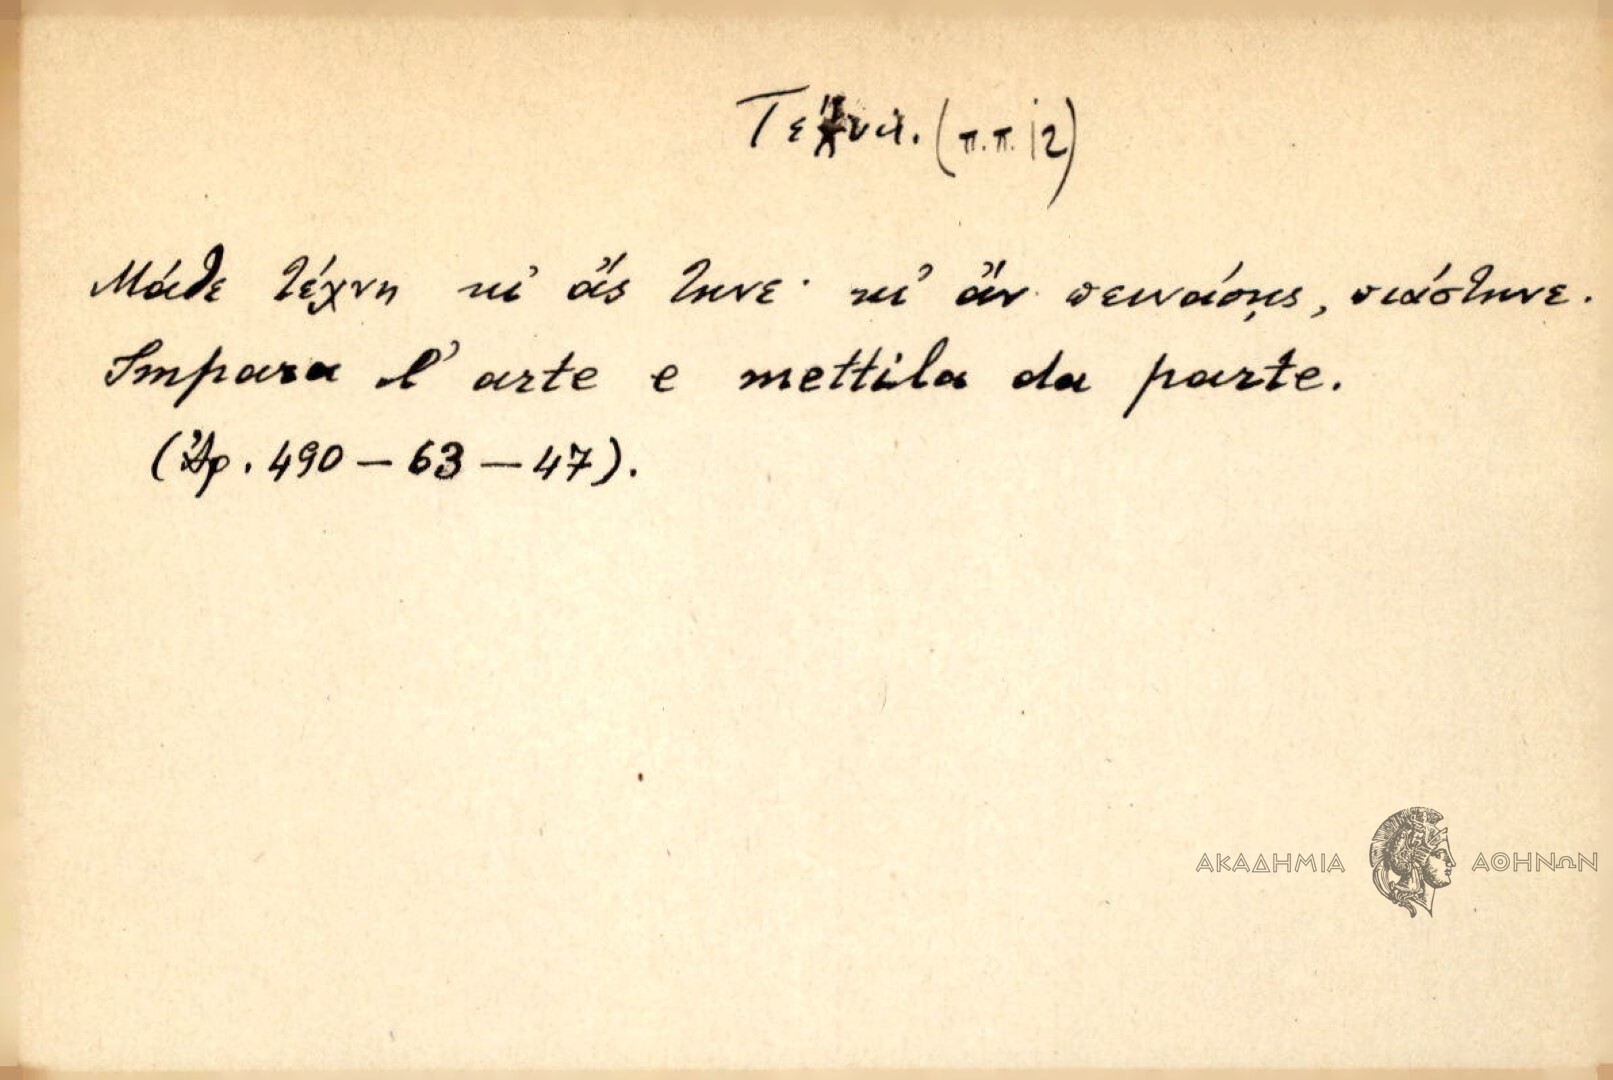 (π.π. 12)
Μάθε τέχνη κι' ἄς τηνε· κι' ἄν πεινάσῃς, πιάστηνε.
Impara l' arte e mettila da parte.
(Ἀρ. 490 – 63 – 47).
ΑΚΑΔΗΜΙΑ ΑΘΗΝΩΝ